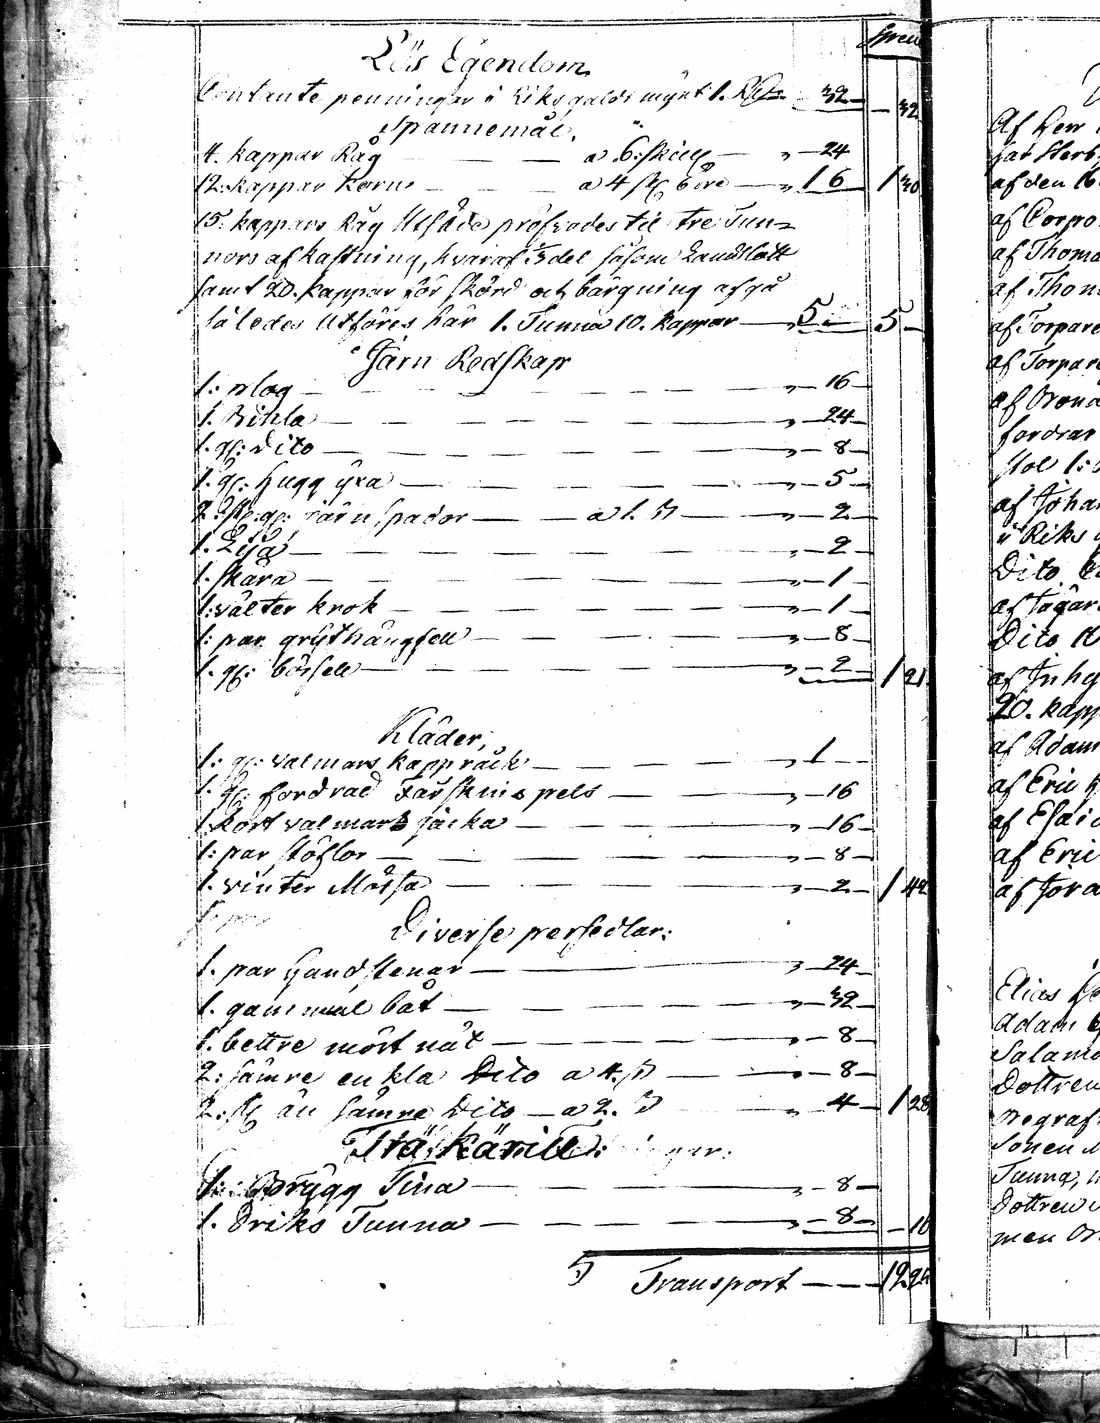 Lös Egendom
Contante penningar i Riksgälds mynt 1. Rd — 32 — 32
Spannemål.
4. kappar Råg — — a 6: skill — „ — 24
12: kappar Korn — — a 4 st: börd — „ 1 6 1 30
15. kappars Råg Utsäde pröfvades til tre Tun=
nors afkastning, hvaraf 1/3 del såsom Landtlott
samt 20. kappar för skörd och bärgning afgå
således Utföres här 1. Tunna 10. kappar — 5 — 5 —
Järn Redskap
1: plog — — — „ — 16 —
1. Bihla — — — „ — 24 —
1. gl: Dito — — — „ — 8 —
1. gl: hugg yxa — — — „ — 5 —
2: st: gl: järn spador — a 1. s — „ — 2 —
1. Lija — — — „ — 2 —
1. skära — — — „ — 1 —
1: välter krok — — — „ — 1 —
1: par grythängsell — — — „ — 8 —
1. gl: börsell — — — „ — 2 — 1 21.
Kläder,
1: gl: valmars kappråck — — — 1 — —
1. gl: fordrad Fårskins pels — — „ — 16
1. kort valmars jacka — — — „ — 16 —
1: par stöflor — — — „ — 8 —
1. vinter Mössa — — — „ — 2 — 1 42
Diverse persedlar:
1. par handstenar — — „ — 24 —
1. gammal båt — — „ — 32 —
1. bettre mört nät — — — „ — 8 —
2: sämre enkla Dito a 4. s — „ — 8 —
2: st än sämre Dito — a 2. s — „ — 4 — 1 28
Träkärill:
1: Brygg Tina — — — „ — 8 —
1. Driks Tunna — — — „ — 8 — — 16
Transport — — — 12 24
Af Herr
har Herb
af den 16
af Corpo
af Thoma
af Thom
af Torpare
af Torpare
af
fordrar
stol 1:
af Joha
i Riks
Dito
af
Dito
af
20. kapp
af Adam
af Eric
af Esai
af Eric
af Jora
Elias
Adam
Salamo
Dottren
Sonen
Tunna,
Dottren
men